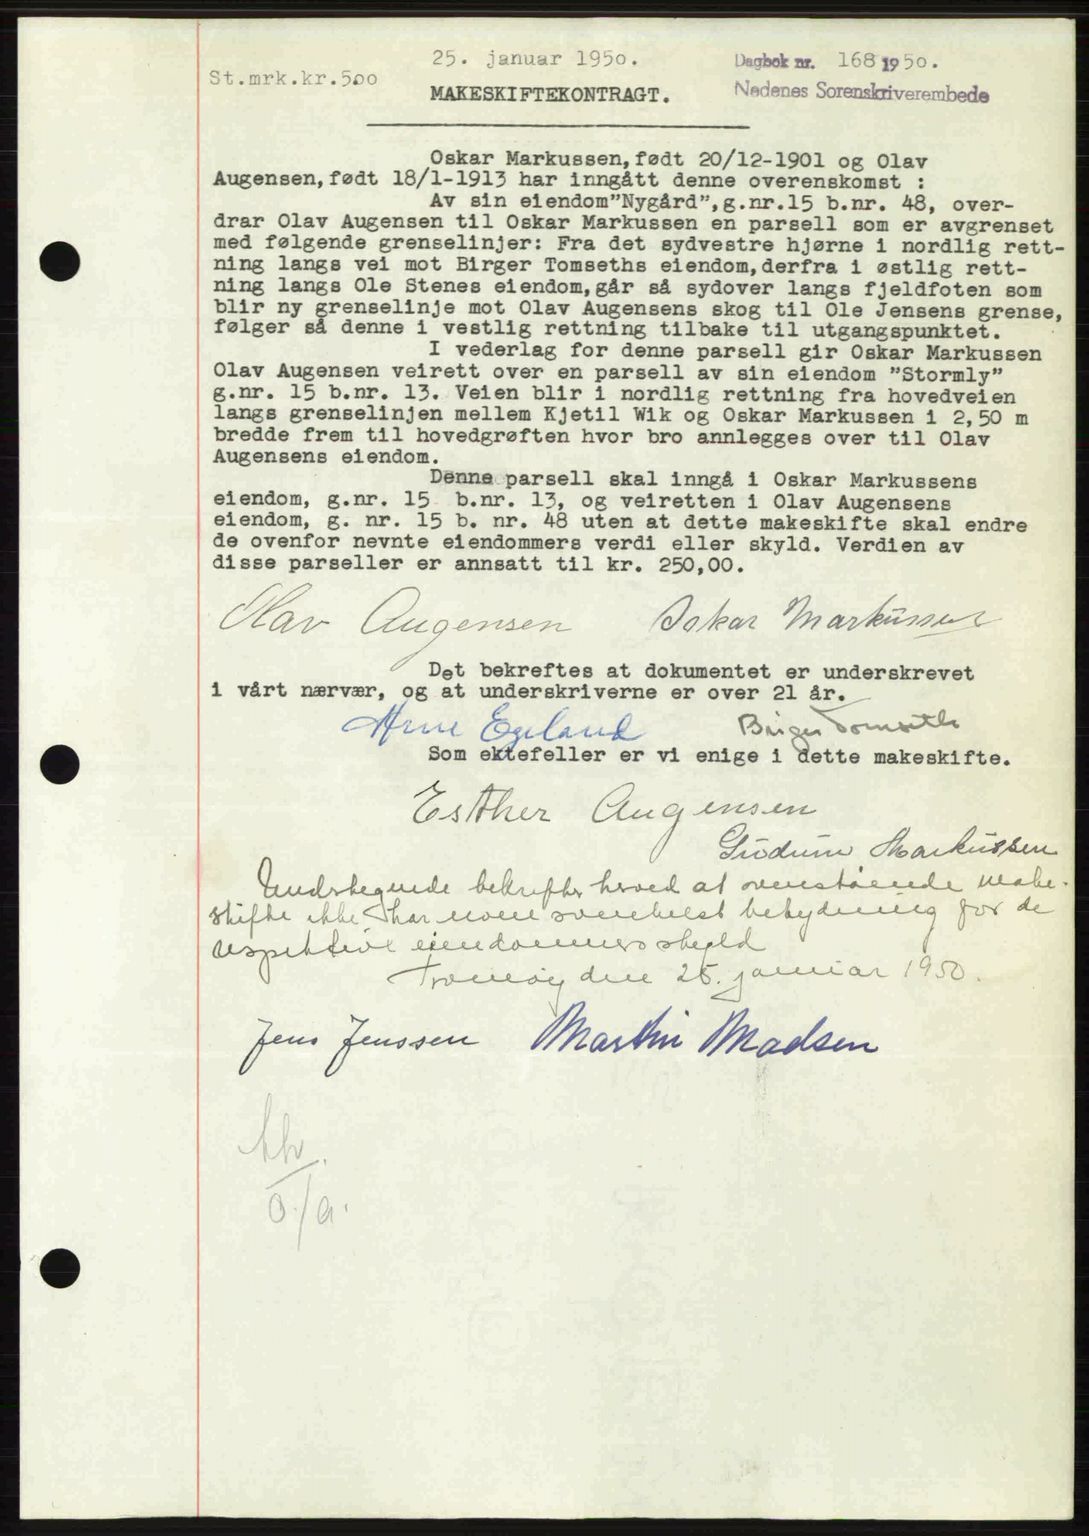 25. januar 1950.
Dagbok nr. 168 1950.
St.mrk.kr.5.00
Nedenes Sorenskriverembede
MAKESKIFTEKONTRAGT.
Oskar Markussen, født 20/12-1901 og Olav
Augensen, født 18/1-1913 har inngått denne overenskomst :
Av sin eiendom "Nygård", g.nr.15 b.nr. 48, over-
drar Olav Augensen til Oskar Markussen en parsell som er avgrenset
med følgende grenselinjer: Fra det sydvestre hjørne i nordlig rett-
ning langs vei mot Birger Tomseths eiendom, derfra i østlig rett-
ning langs Ole Stenes eiendom, går så sydover langs fjeldfoten som
blir ny grenselinje mot Olav Augensens skog til Ole Jensens grense,
følger så denne i vestlig rettning tilbake til utgangspunktet.
I vederlag for denne parsell gir Oskar Markussen
Olav Augensen veirett over en parsell av sin eiendom "Stormly"
g.nr. 15 b.nr. 13. Veien blir i nordlig rettning fra hovedveien
langs grenselinjen mellem Kjetil Wik og Oskar Markussen i 2,50 m
bredde frem til hovedgrøften hvor bro annlegges over til Olav
Augensens eiendom.
Denne parsell skal inngå i Oskar Markussens
eiendom, g.nr. 15 b.nr. 13, og veiretten i Olav Augensens
eiendom, g. nr. 15 b. nr. 48 uten at dette makeskifte skal endre
de ovenfor nevnte eiendommers verdi eller skyld. Verdien av
disse parseller er annsatt til kr. 250,00.
Olav Augensen Oskar Markussen
Det bekreftes at dokumentet er underskrevet
i vårt nærvær, og at underskriverne er over 21 år.
Arne Egeland Birger Tomseth
Som ektefeller er vi enige i dette makeskifte.
Esther Augensen
Gudrun Markussen
Undertegnede bekrefter herved at ovenstående make-
skifte ikke har noen somhelst betydning for de
respektive eiendommers skyld
Tromøy den 25. januar 1950.
Jens Jenssen Martin Madsen